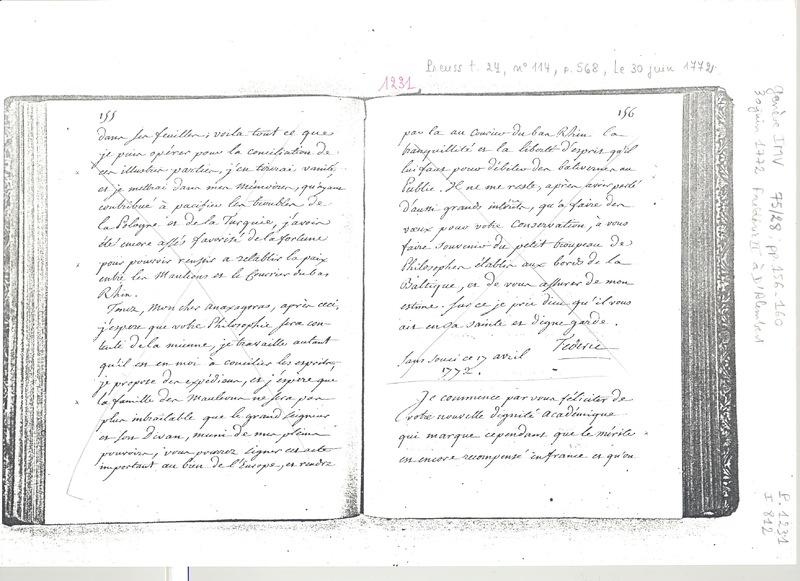 Preuss t. 24, n° 114, p. 568, Le 30 juin 1772
1231
155
dans ses feuilles; voila tout ce que
je puis opérer pour la conciliation de
ces illustres parties, j'en tirerai vanité,
et je mettrai dans mes Mémoires, qu'ayant
contribué à pacifier les troubles de
la Pologne et de la Turquie, j'avois
été encore assés favorisé de la fortune
pour pouvoir reussir a retablir la paix
entre les Mauleons et le Courier du bas
Rhin.
Tenez, Mon cher anaxagoras, après ceci,
j'espere que votre Philosophie sera con-
tente de la mienne, je travaille autant
qu'il est en moi à concilier les esprits,
je propose des expédiens, et j'espere que
la famille des Mauleons ne sera pas
plus intraitable que le grand seigneur
et son Divan, muni de mes pleins
pouvoirs, vous pouvez signer cet acte
important au bien de l'Europe, et rendre
156
par la au Courier du bas Rhin la
tranquillité et la liberté d'esprit qu'il
lui faut pour débiter des balivernes au
Public. Il ne me reste, après avoir parlé
d'aussi grands intérêts, qu'a faire des
vœux pour votre Conservation, à vous
faire souvenir du petit troupeau de
Philosophes établis aux bords de la
Baltique, et de vous assurer de mon
estime. Sur ce je prie dieu qu'il vous
ait en sa sainte et digne garde.
Féderic
Sans souci ce 17 avril
1772.
Je commence par vous féliciter de
votre nouvelle dignité académique
qui marque cependant que le mérite
est encore recompensé en france et qu'on
Genève IMV 75/28 pp 156-160
30 juin 1772 Frédéric II à D'Alembert
P. 1231
I 812